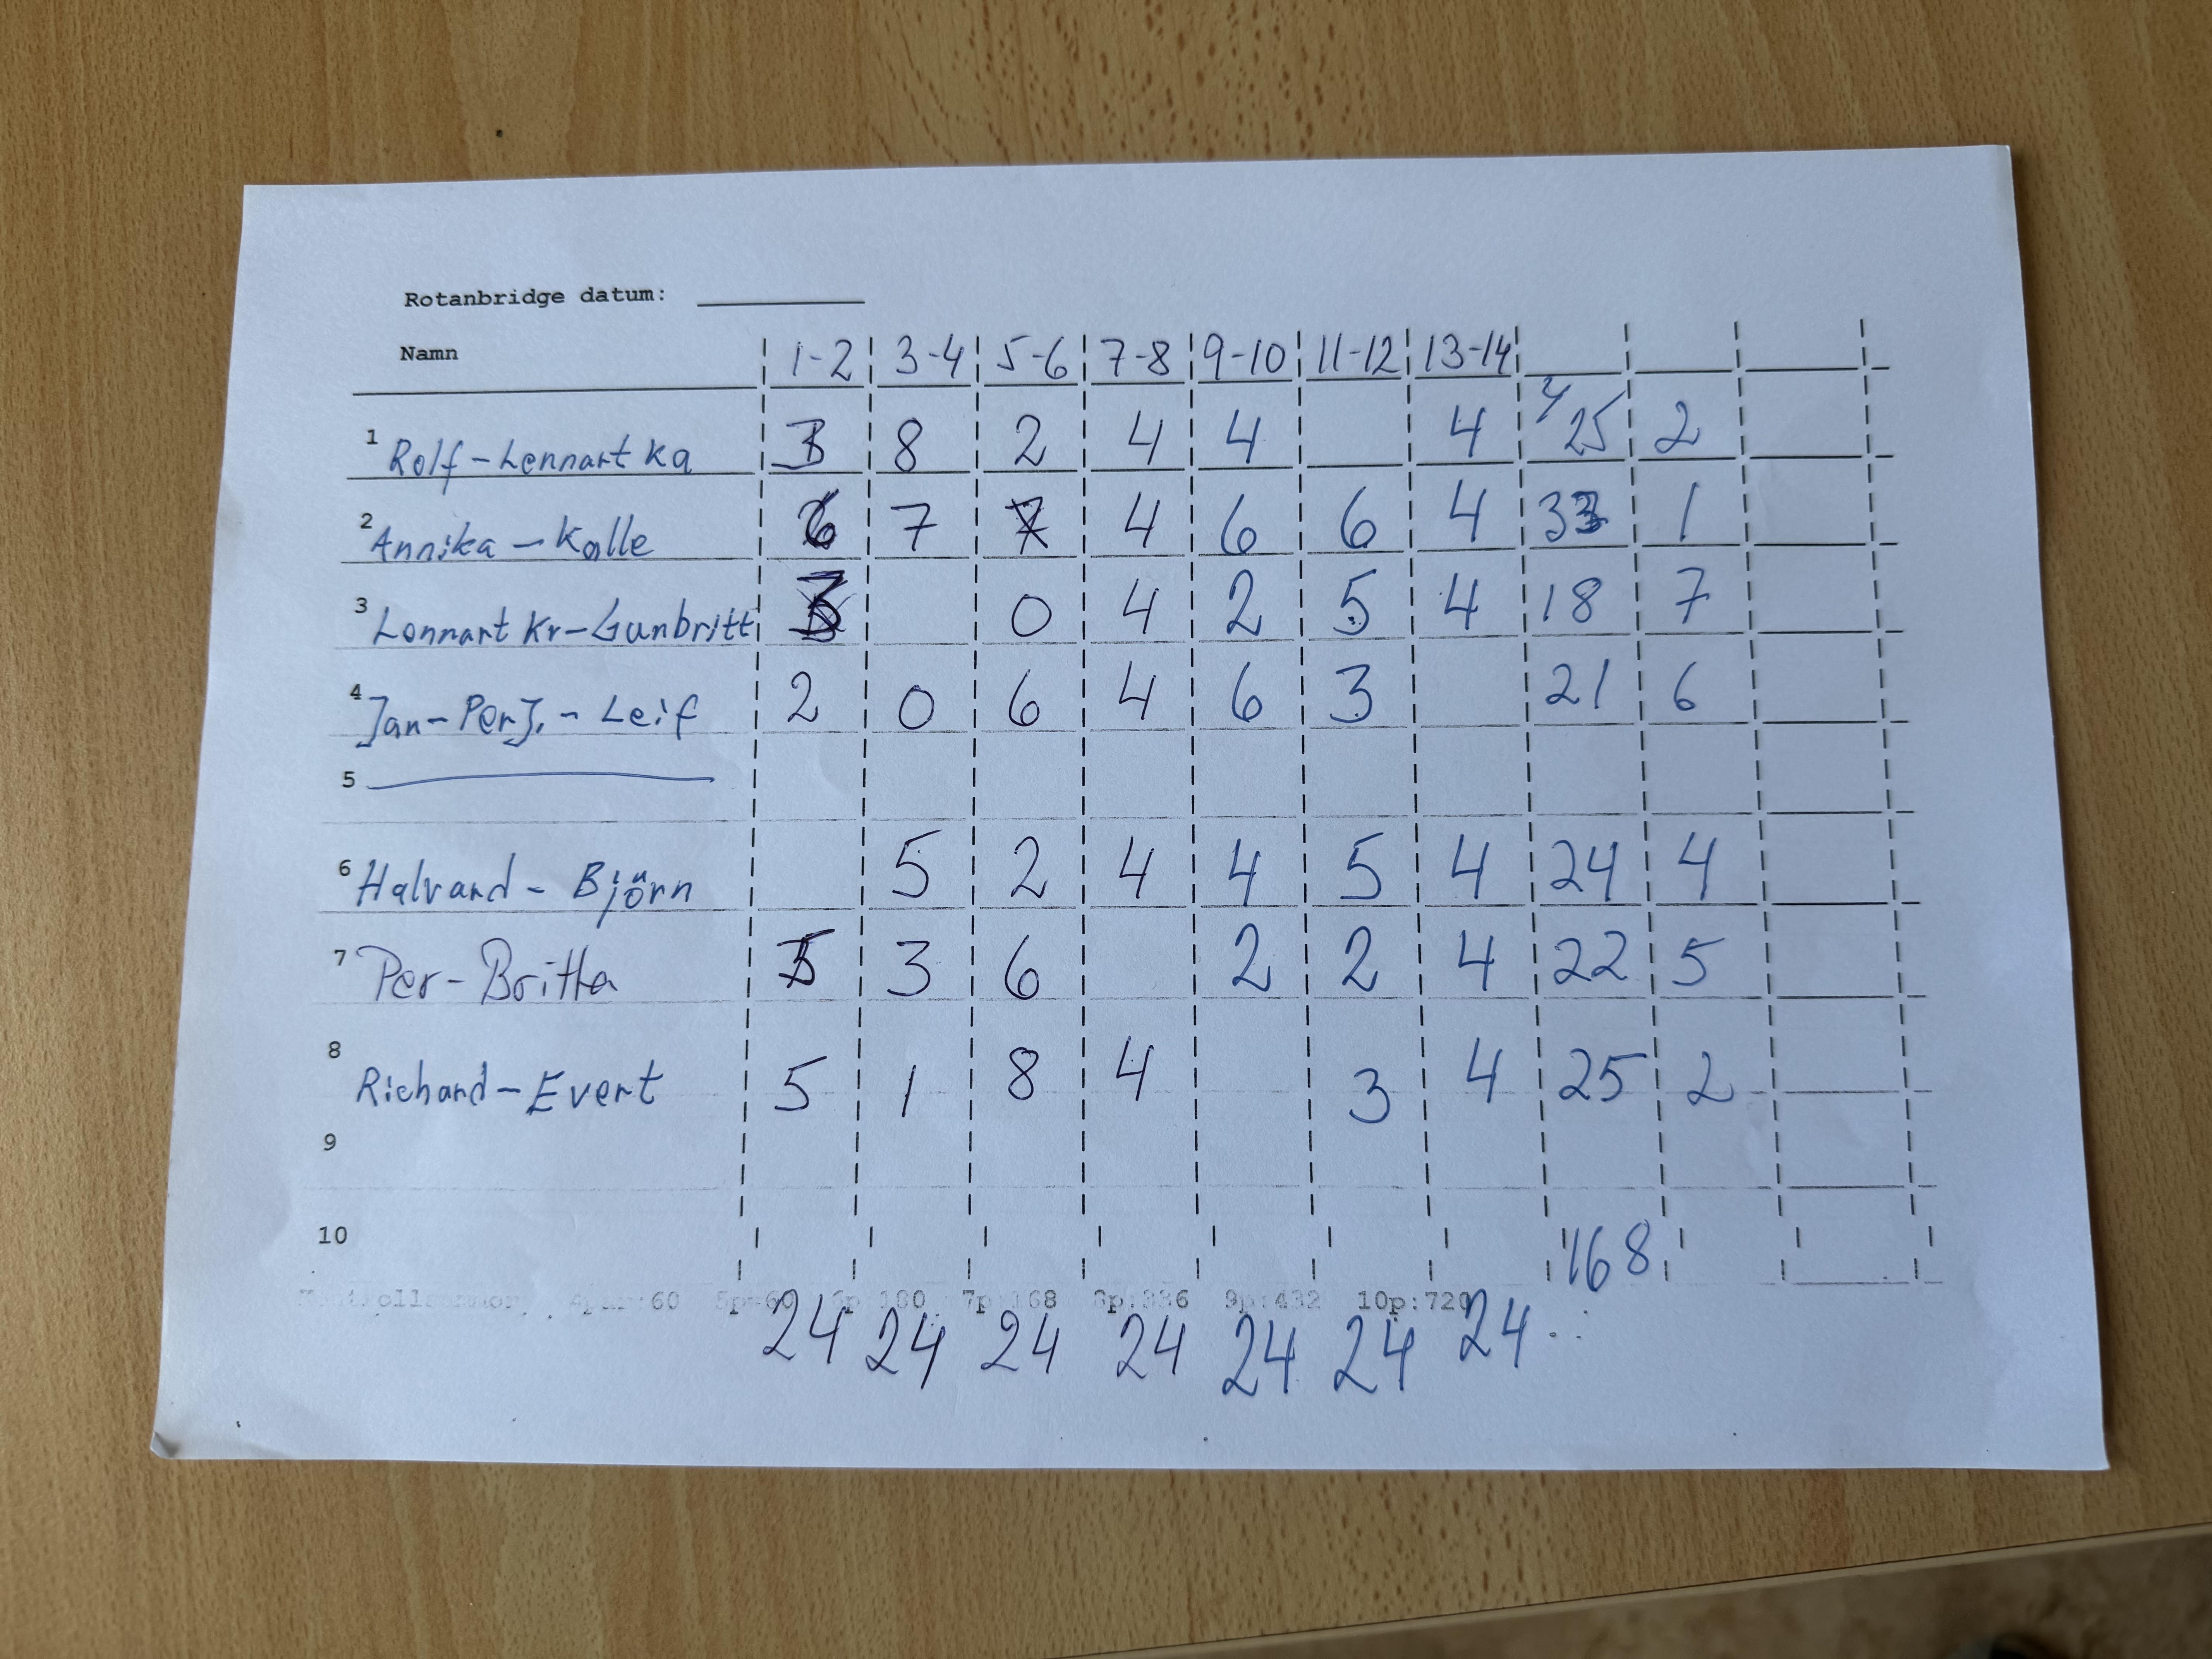 Rotanbridge datum:
Namn 1-2 3-4 5-6 7-8 9-10 11-12 13-14
1 Rolf-Lennart Ka 3 8 2 4 4 4 25 2
2 Annika-Kalle 6 7 4 6 6 4 33 1
3 Lennart Kr-Gunbritt 3 0 4 2 5 4 18 7
4 Jan-Per J.-Leif 2 0 6 4 6 3 21 6
5
6 Halvard-Björn 5 2 4 4 5 4 24 4
7 Per-Britta 5 3 6 2 2 4 22 5
8 Richard-Evert 5 1 8 4 3 4 25 2
9
10 168
5p=60 7p:168 8p:336 9p:432 10p:720
24 24 24 24 24 24 24